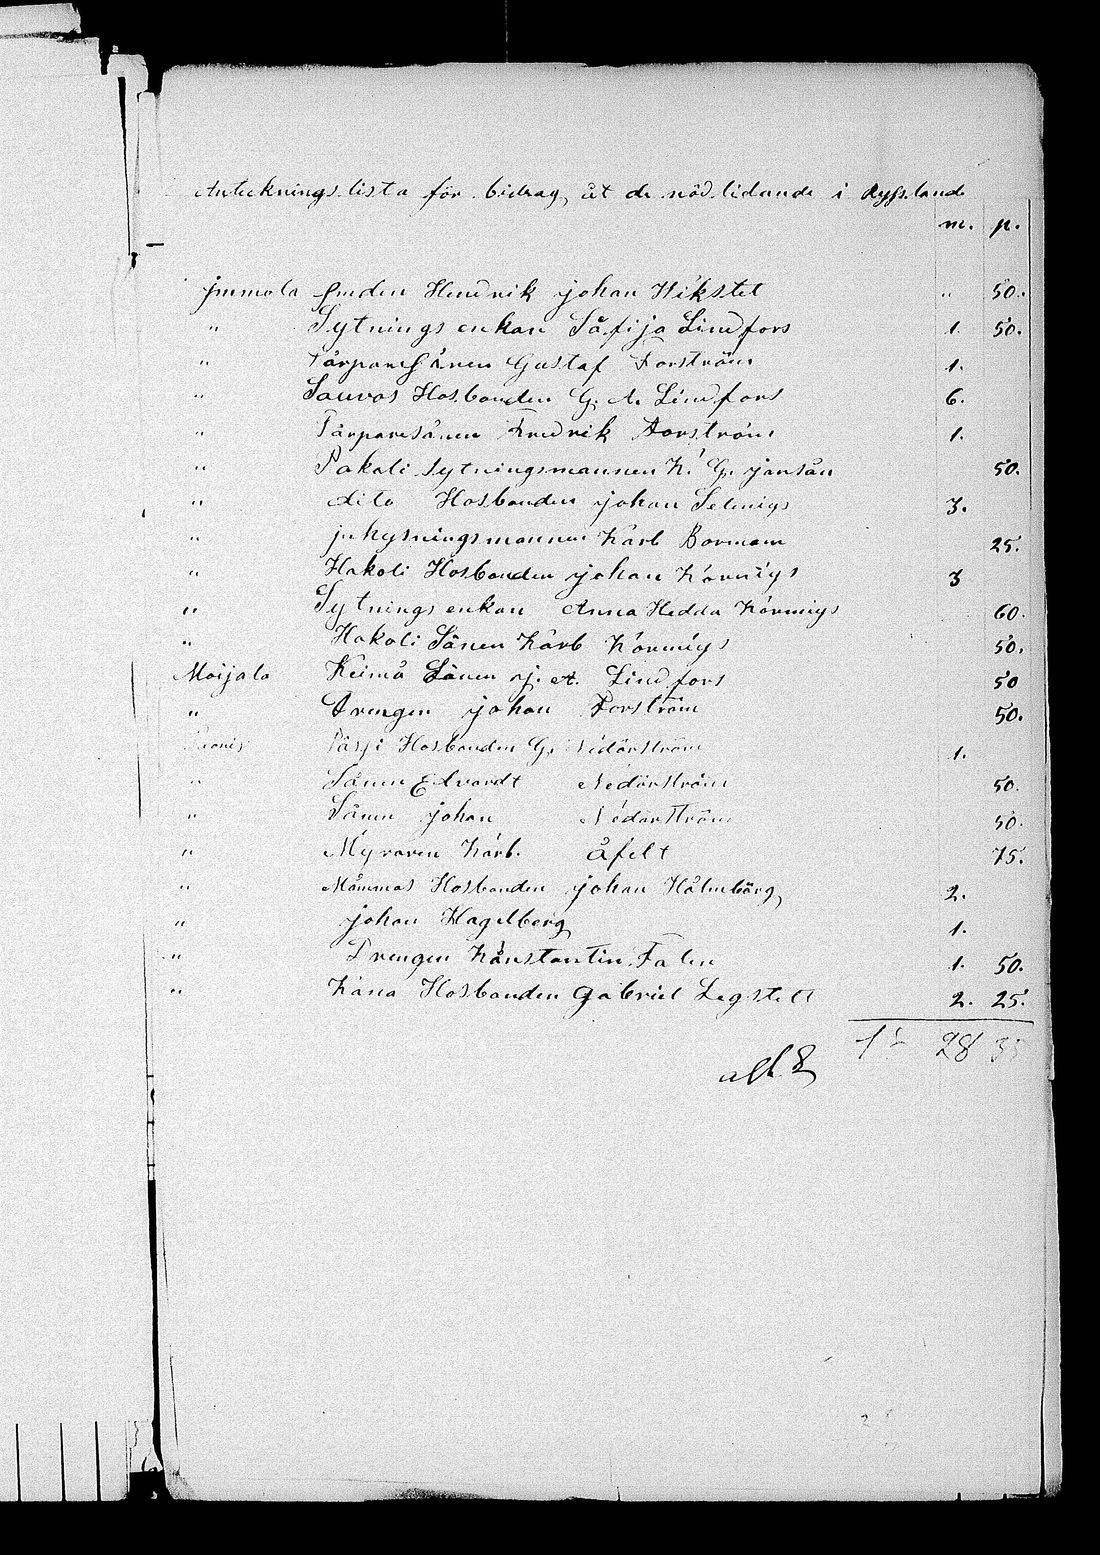 Antecknings lista för bidrag åt de nöd lidande i Ryss land
m. p.
jmmola Smeden Hendrik johan Wikstet " 50.
" Sytnings enkan Såfija Lindfors 1. 50.
" Tårpare Sånen Gustaf Forström 1.
" Sauvos Hosbonden G. A. Lindfors 6.
" Tårparesånen Fredrik Forström 1.
" Pakoli Sytningsmannen K. G. jansån 50.
" dito Hosbonden johan Selenigs 3.
" johan Karl Borman 25.
" Hakoli Hosbonden johan Körnigs 3
" Sytnings enkan Anna Hedda Körnigs 60.
" Hakoli Sånen Karl Körnigs 50.
Moijala Keimå Sånen j. A. Lindfors 50
" Drengen johan Forström 50.
Hosbonden G. Nedårström 1.
" Sånen Edvardt Nedårström 50.
" Sånen johan Nedårström 50.
" Myraren Karl. åfelt 75.
" Måmmas Hosbonden johan Hålmbårg 2.
" johan Hagelberg 1.
" Drengen Kånstantin Falin 1. 50.
" Kåna Hosbonden Gabriel Legstett 2. 25.
28 35